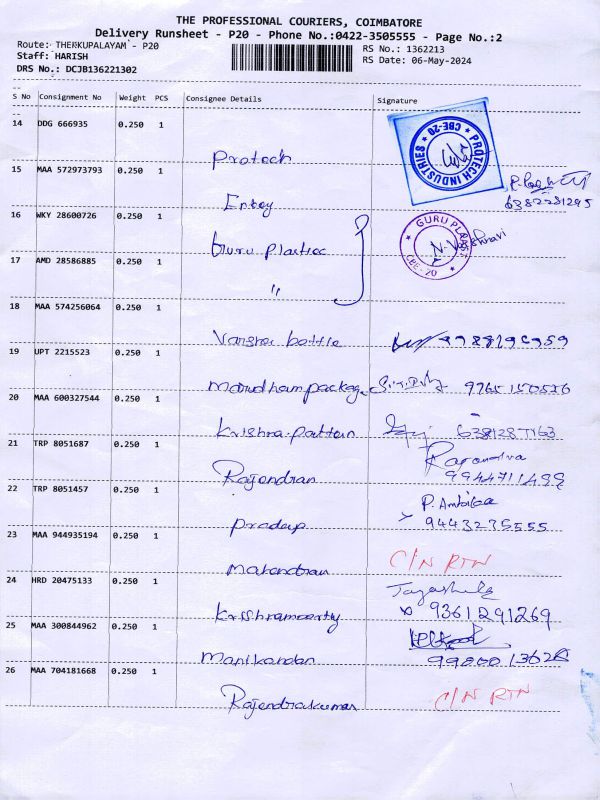 THE PROFESSIONAL COURIERS, COIMBATORE
Delivery Runsheet - P20 - Phone No.:0422-3505555 - Page No.:2
Route: THEKKUPALAYAM - P20
RS No.: 1362213
Staff: HARISH
RS Date: 06-May-2024
DRS No.: DCJB136221302
S No Consignment No Weight PCS Consignee Details Signature
14 DDG 666935 0.250 1
Protech
PROTECH INDUSTRIES
CBE-20
15 MAA 572973793 0.250 1
6382281295
16 WKY 28600726 0.250 1
Guru Plastic
GURU PLAST
CBE-20
17 AMD 28586885 0.250 1
"
18 MAA 574256064 0.250 1
bottle
19 UPT 2215523 0.250 1
20 MAA 600327544 0.250 1
Krishna
21 TRP 8051687 0.250 1
Rajendran
22 TRP 8051457 0.250 1
P. Ambika
Pradeep
9443235555
23 MAA 944935194 0.250 1
C/N RTN
Mahendran
24 HRD 20475133 0.250 1
9361291269
Krishnamoorthy
25 MAA 300844962 0.250 1
Manikandan
26 MAA 704181668 0.250 1
C/N RTN
Rajendrakumar